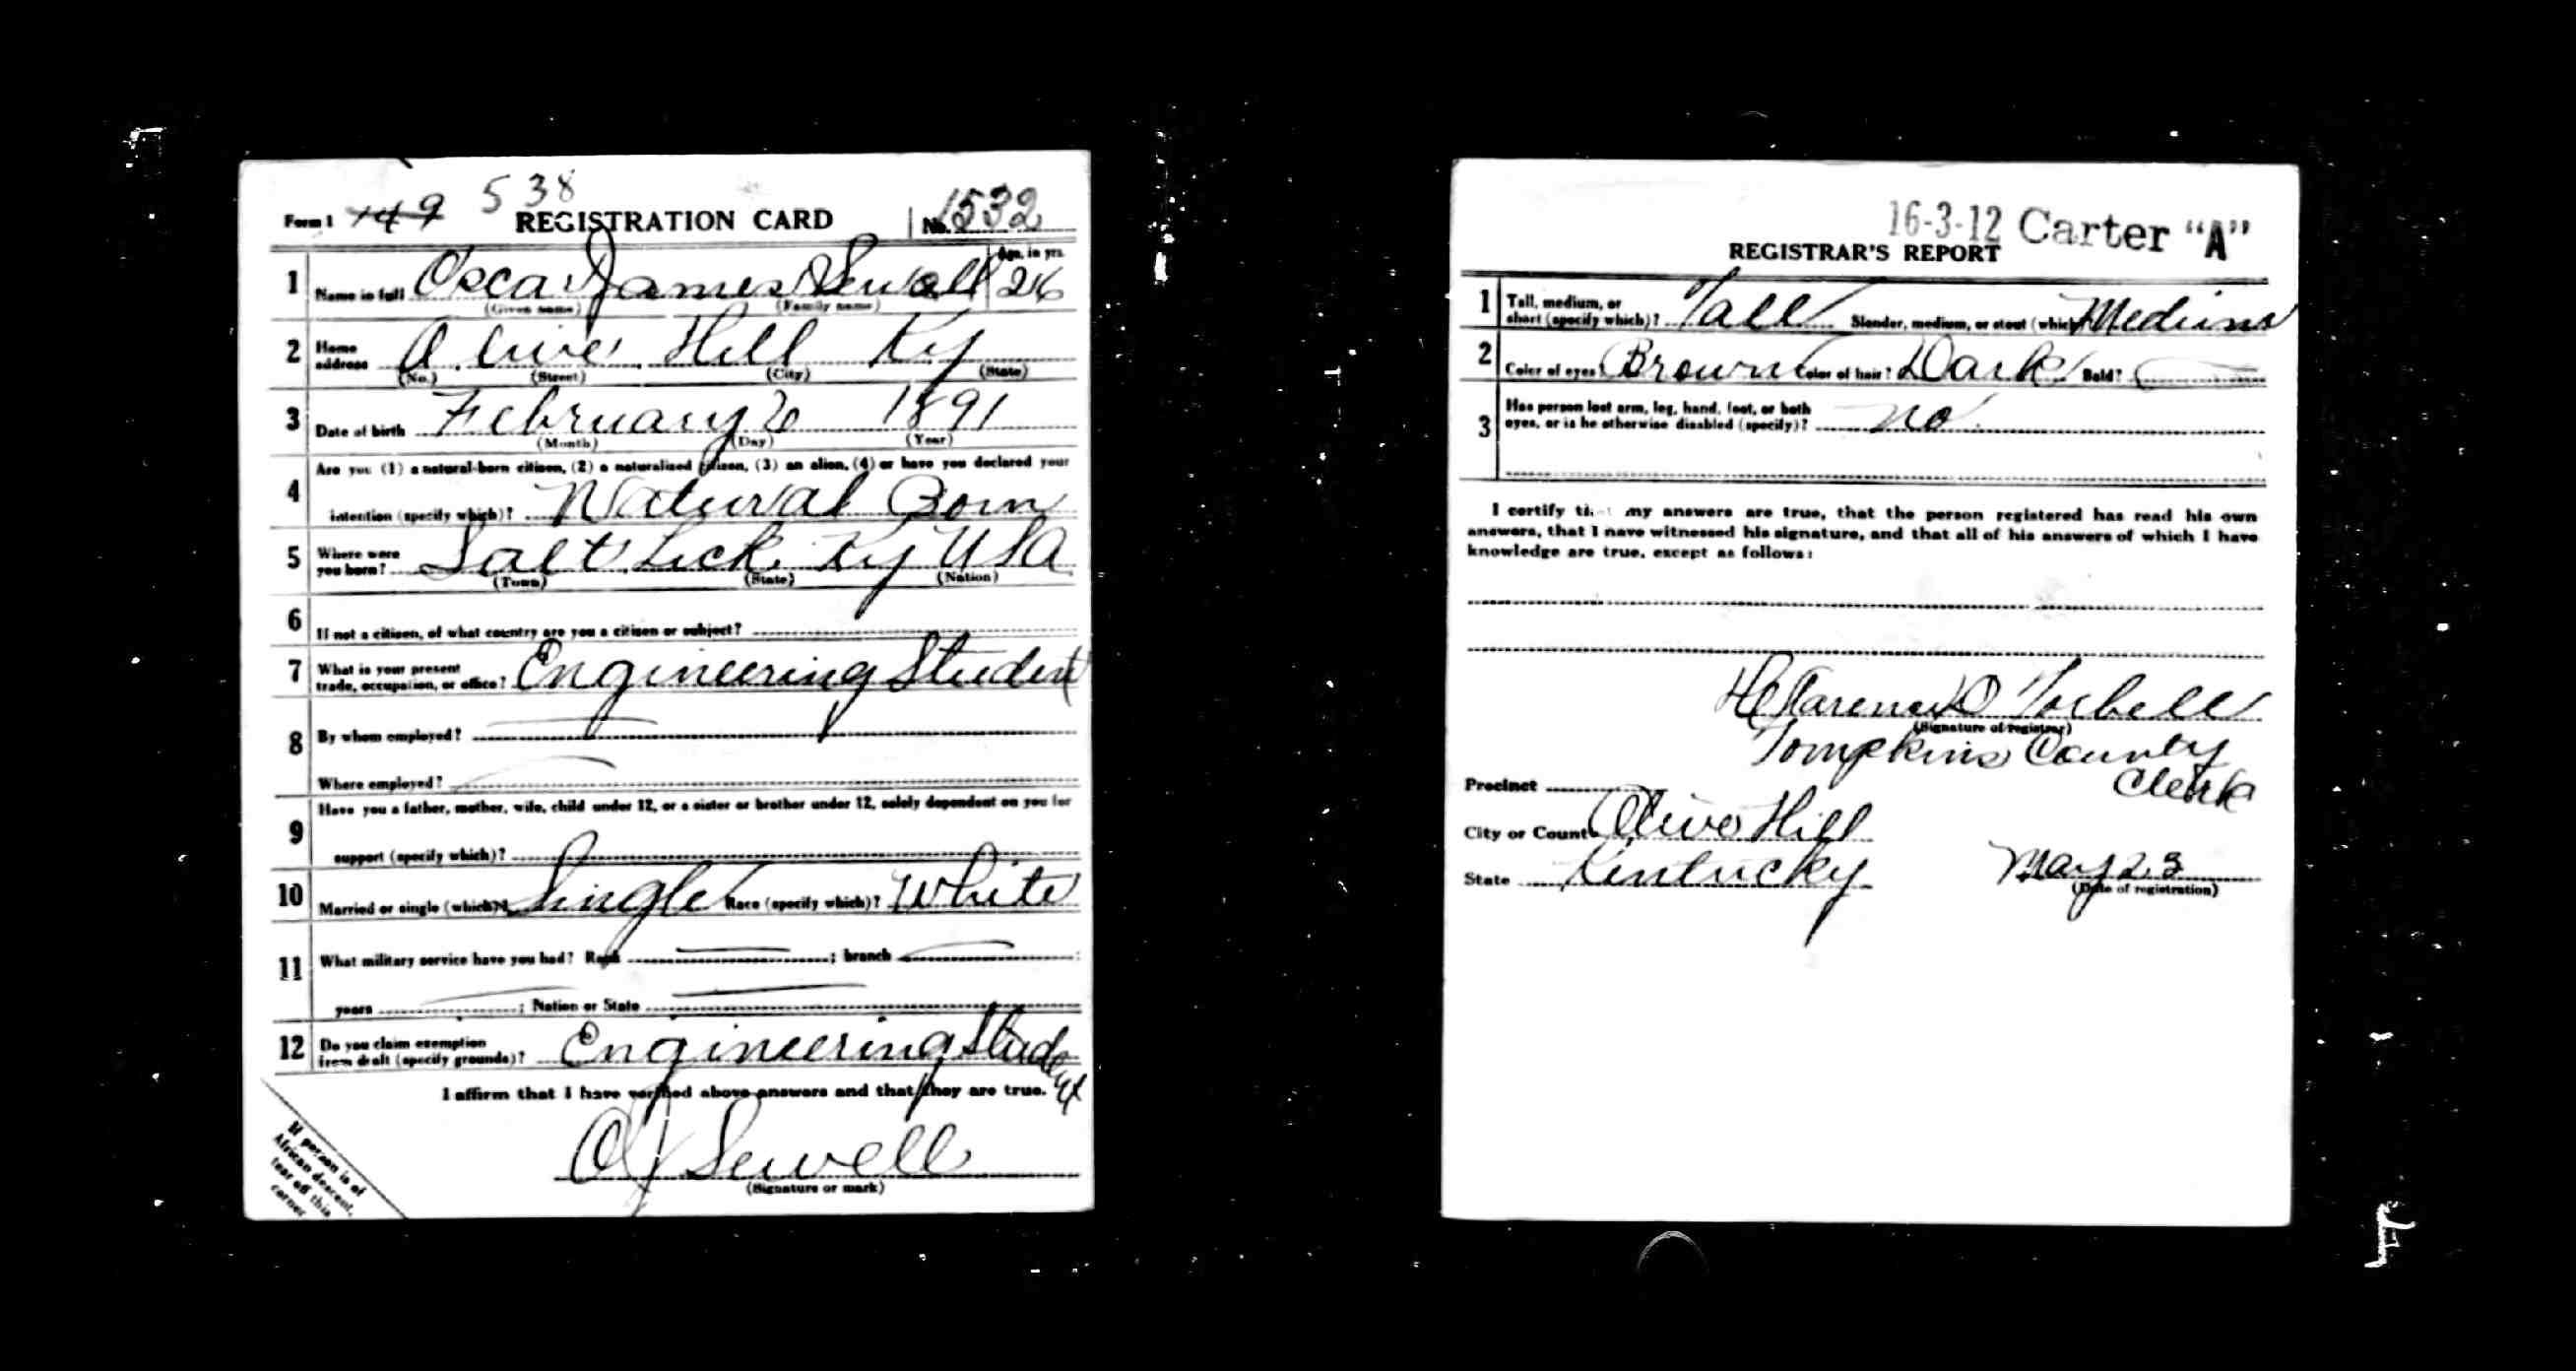 538
Form 1 149 REGISTRATION CARD No. 1532
1 Name in full Oscar James Sewell Age, in yrs. 26
(Given name) (Family name)
2 Home address Olive Hill Ky
(No.) (Street) (City) (State)
3 Date of birth February 6 1891
(Month) (Day) (Year)
4 Are you (1) a natural-born citizen, (2) a naturalized citizen, (3) an alien, (4) or have you declared your
intention (specify which)? Natural Born
5 Where were you born? Salt Lick Ky USA
(Town) (State) (Nation)
6 If not a citizen, of what country are you a citizen or subject?
7 What is your present trade, occupation, or office? Engineering Student
8 By whom employed?
Where employed?
9 Have you a father, mother, wife, child under 12, or a sister or brother under 12, solely dependent on you for
support (specify which)?
10 Married or single (which)? Single Race (specify which)? White
11 What military service have you had? Rank ; branch
years ; Nation or State
12 Do you claim exemption from draft (specify grounds)? Engineering Student
I affirm that I have verified above answers and that they are true.
O J Sewell
(Signature or mark)
If person is of
African descent,
tear off this
corner
16-3-12 Carter "A"
REGISTRAR'S REPORT
1 Tall, medium, or short (specify which)? Tall Slender, medium, or stout (which)? Medium
2 Color of eyes Brown Color of hair? Dark Bald?
3 Has person lost arm, leg, hand, foot, or both
eyes, or is he otherwise disabled (specify)? no
I certify that my answers are true, that the person registered has read his own
answers, that I have witnessed his signature, and that all of his answers of which I have
knowledge are true, except as follows:
(Signature of registrar)
Tompkins County
Precinct Clerk
City or County Olive Hill
State Kentucky May 23
(Date of registration)